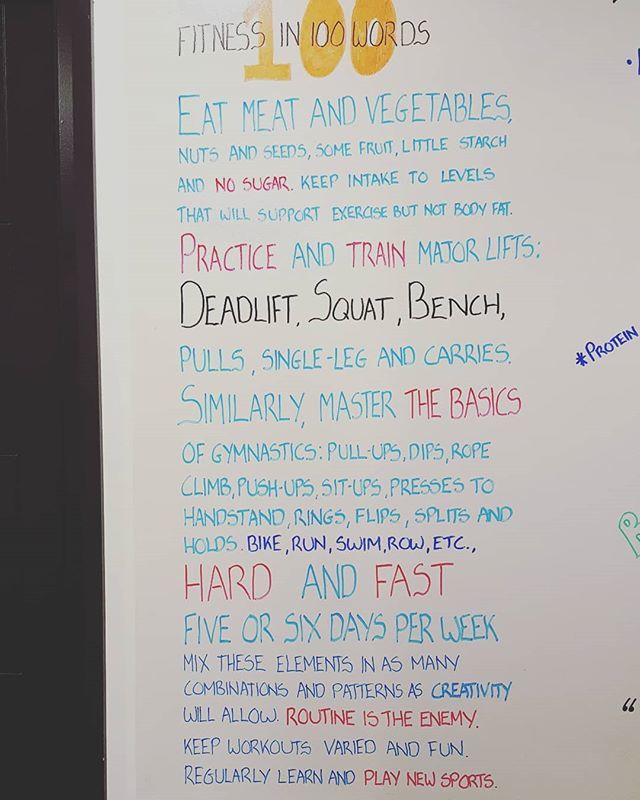 100
FITNESS IN 100 WORDS
EAT MEAT AND VEGETABLES,
NUTS AND SEEDS, SOME FRUIT, LITTLE STARCH
AND NO SUGAR. KEEP INTAKE TO LEVELS
THAT WILL SUPPORT EXERCISE BUT NOT BODY FAT.
PRACTICE AND TRAIN MAJOR LIFTS:
DEADLIFT, SQUAT, BENCH,
PULLS, SINGLE-LEG AND CARRIES.
SIMILARLY, MASTER THE BASICS
OF GYMNASTICS: PULL-UPS, DIPS, ROPE
CLIMB, PUSH-UPS, SIT-UPS, PRESSES TO
HANDSTAND, RINGS, FLIPS, SPLITS AND
HOLDS. BIKE, RUN, SWIM, ROW, ETC.,
HARD AND FAST
FIVE OR SIX DAYS PER WEEK
MIX THESE ELEMENTS IN AS MANY
COMBINATIONS AND PATTERNS AS CREATIVITY
WILL ALLOW. ROUTINE IS THE ENEMY.
KEEP WORKOUTS VARIED AND FUN.
REGULARLY LEARN AND PLAY NEW SPORTS.
*PROTEIN